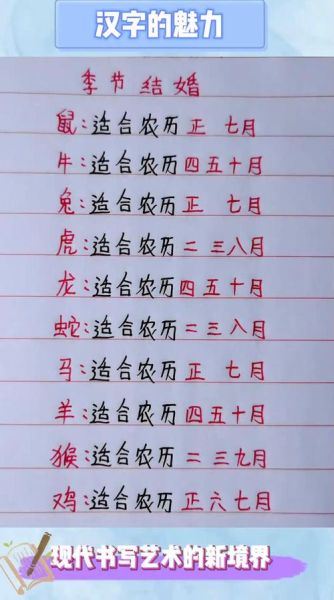 汉字的魅力
季节结婚
鼠:适合农历正 七月
牛:适合农历四五十月
兔:适合农历正 七月
虎:适合农历二三八月
龙:适合农历四五十月
蛇:适合农历二三八月
马:适合农历正 七月
羊:适合农历四五十月
猴:适合农历二三九月
鸡:适合农历正六七月
现代书写艺术的新境界